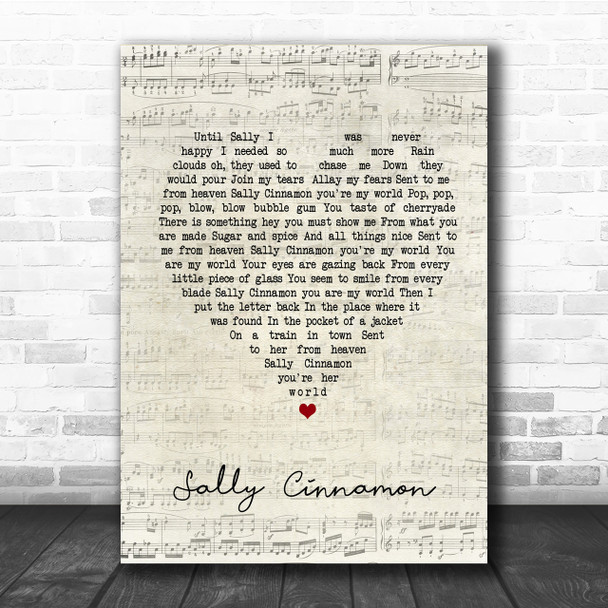 Until Sally I was never
happy I needed so much more Rain
clouds oh, they used to chase me Down they
would pour Join my tears Allay my fears Sent to me
from heaven Sally Cinnamon you're my world Pop, pop,
pop, blow, blow bubble gum You taste of cherryade
There is something hey you must show me From what you
are made Sugar and spice And all things nice Sent to
me from heaven Sally Cinnamon you're my world You
are my world Your eyes are gazing back From every
little piece of glass You seem to smile from every
blade Sally Cinnamon you are my world Then I
put the letter back In the place where it
was found In the pocket of a jacket
On a train in town Sent
to her from heaven
Sally Cinnamon
you're her
world
Sally Cinnamon